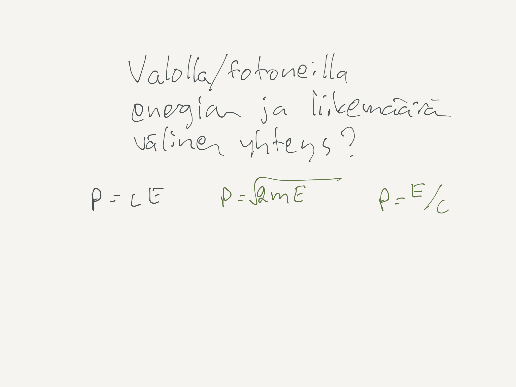 Valolla/fotoneilla
energian ja liikemäärä
välinen yhteys?
p = cE p = √2mE p = E/c